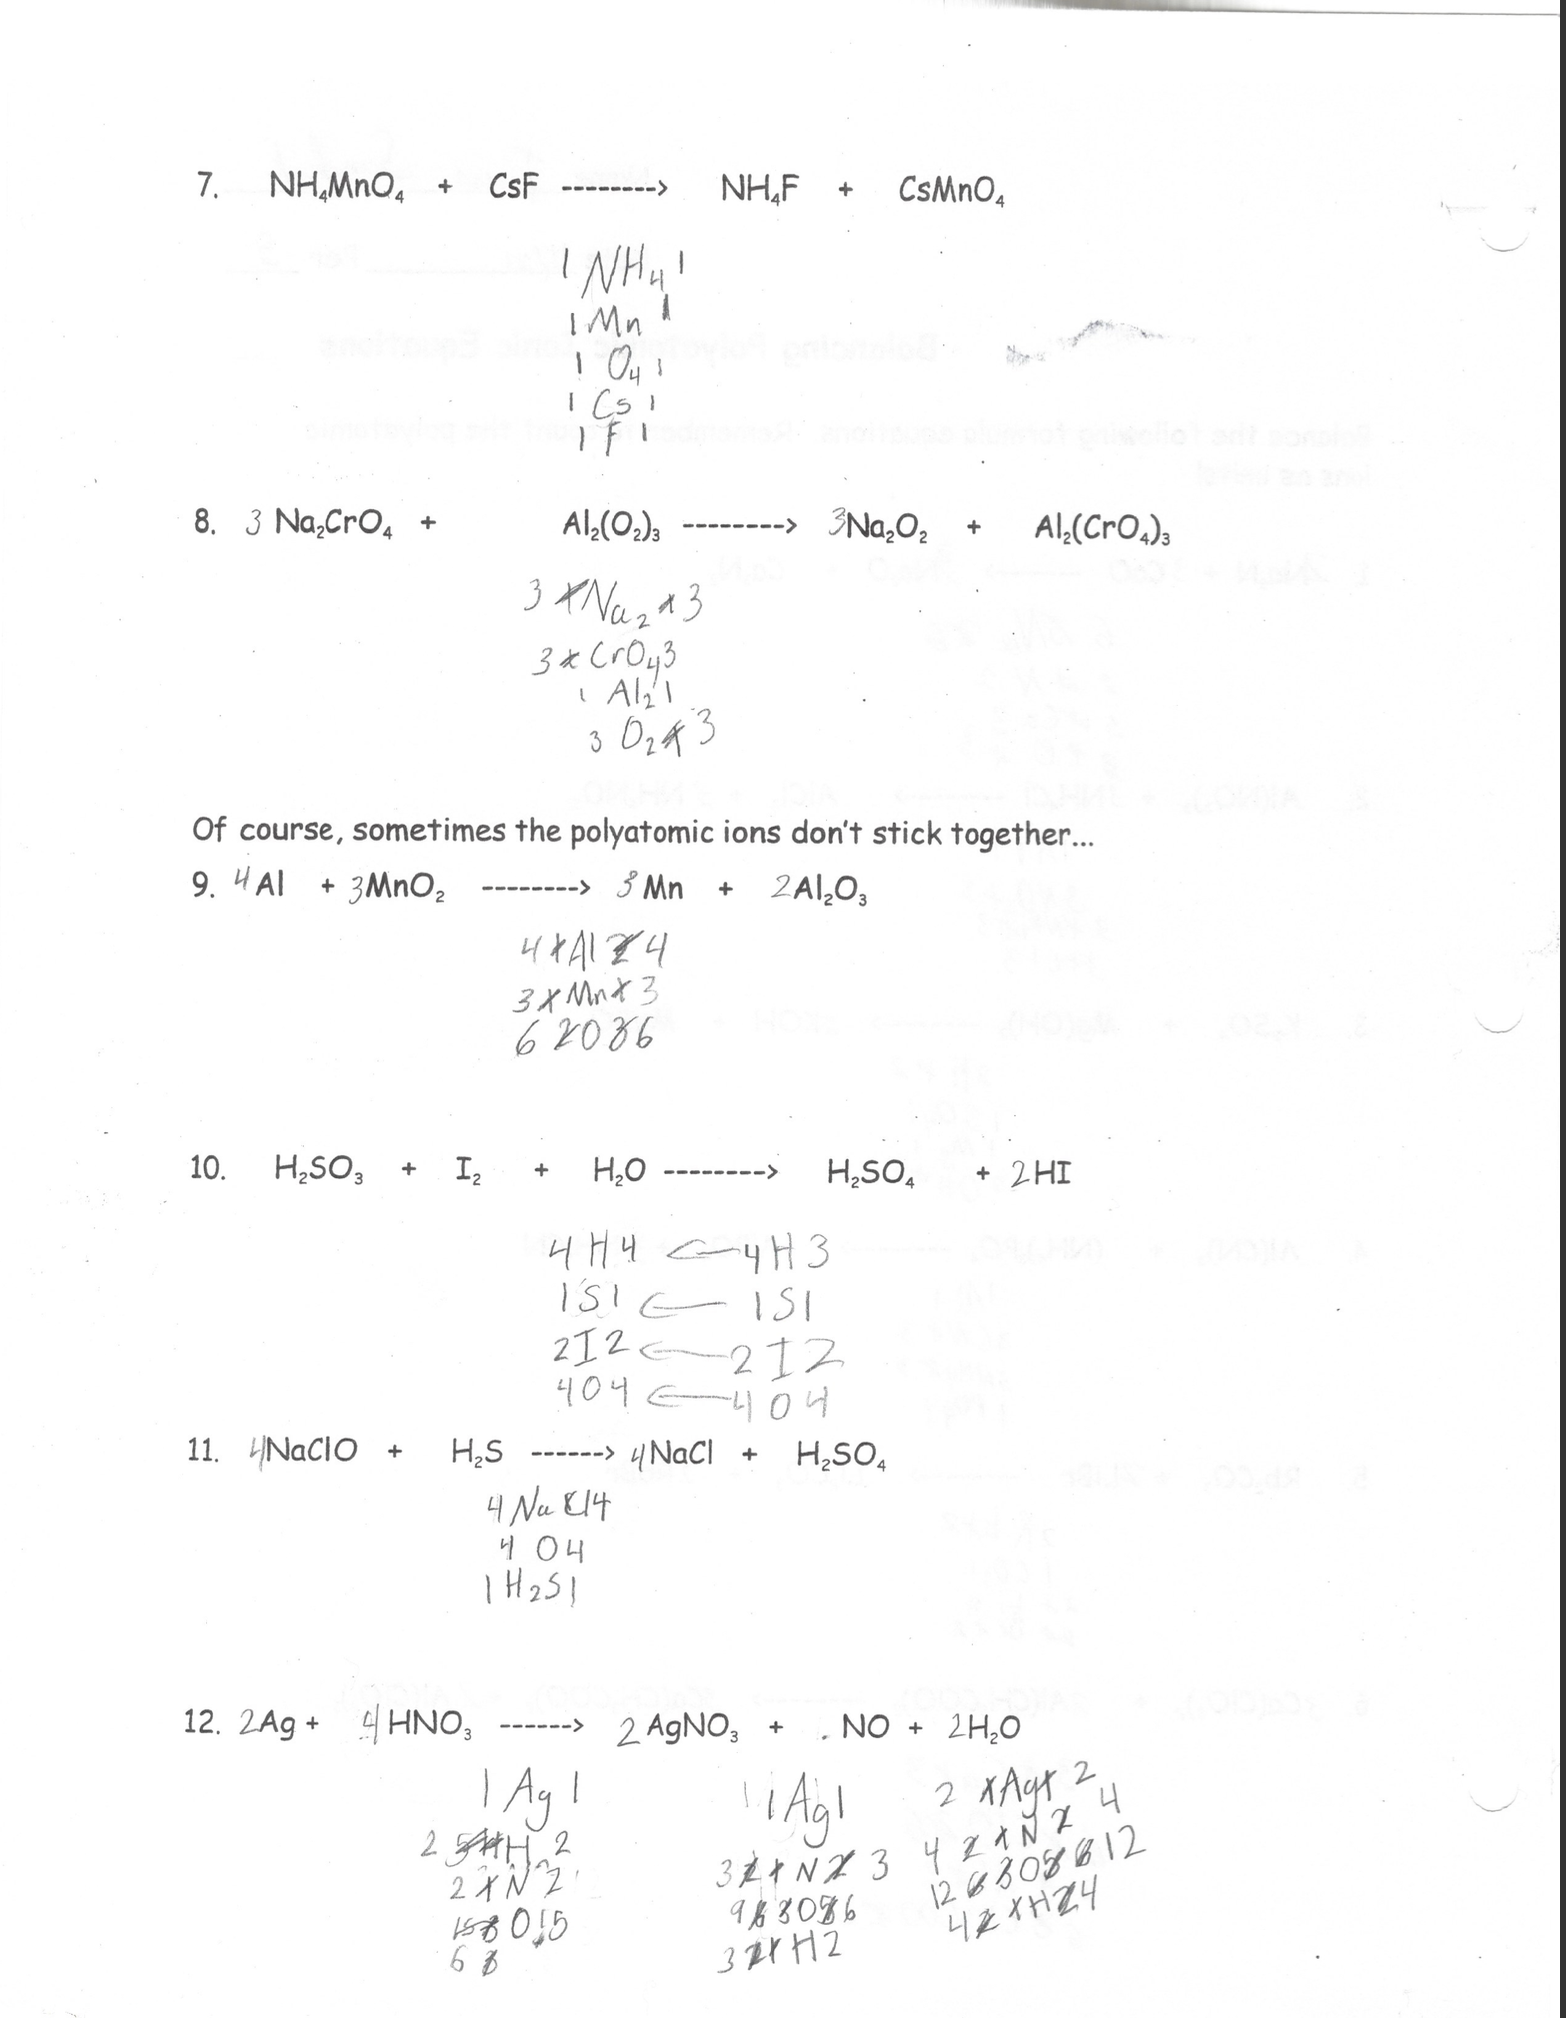 7. NH₄MnO₄ + CsF --------> NH₄F + CsMnO₄
1 NH₄ 1
1 Mn 1
1 O₄ 1
1 Cs 1
1 F 1
8. 3 Na₂CrO₄ + Al₂(O₂)₃ --------> 3Na₂O₂ + Al₂(CrO₄)₃
3 Na₂ 3
3 CrO₄ 3
1 Al₂ 1
3 O₂ 3
Of course, sometimes the polyatomic ions don't stick together...
9. 4Al + 3MnO₂ --------> 3Mn + 2Al₂O₃
4 Al 4
3 Mn 3
6 O 6
10. H₂SO₃ + I₂ + H₂O --------> H₂SO₄ + 2HI
4 H 4 ← 4 H 3
1 S 1 ← 1 S 1
2 I 2 ← 2 I 2
4 O 4 ← 4 O 4
11. 4NaClO + H₂S ------> 4NaCl + H₂SO₄
4 NaCl 4
4 O 4
1 H₂S 1
12. 2Ag + 4HNO₃ ------> 2AgNO₃ + NO + 2H₂O
1 Ag 1 1 Ag 1 2 Ag 2
2 H 2 3 N 3 4 N 4
2 N 2 9 O 6 12 O 12
O 15 3 H 2 4 H 4
6